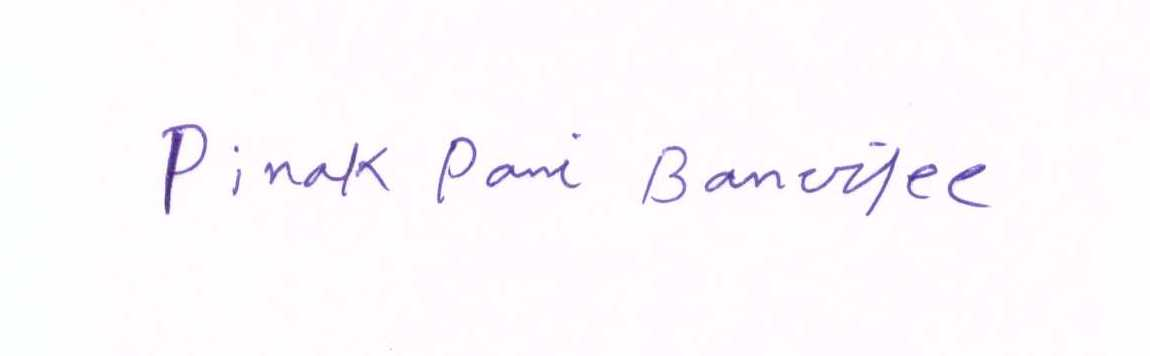 Pinak Pani Banerjee